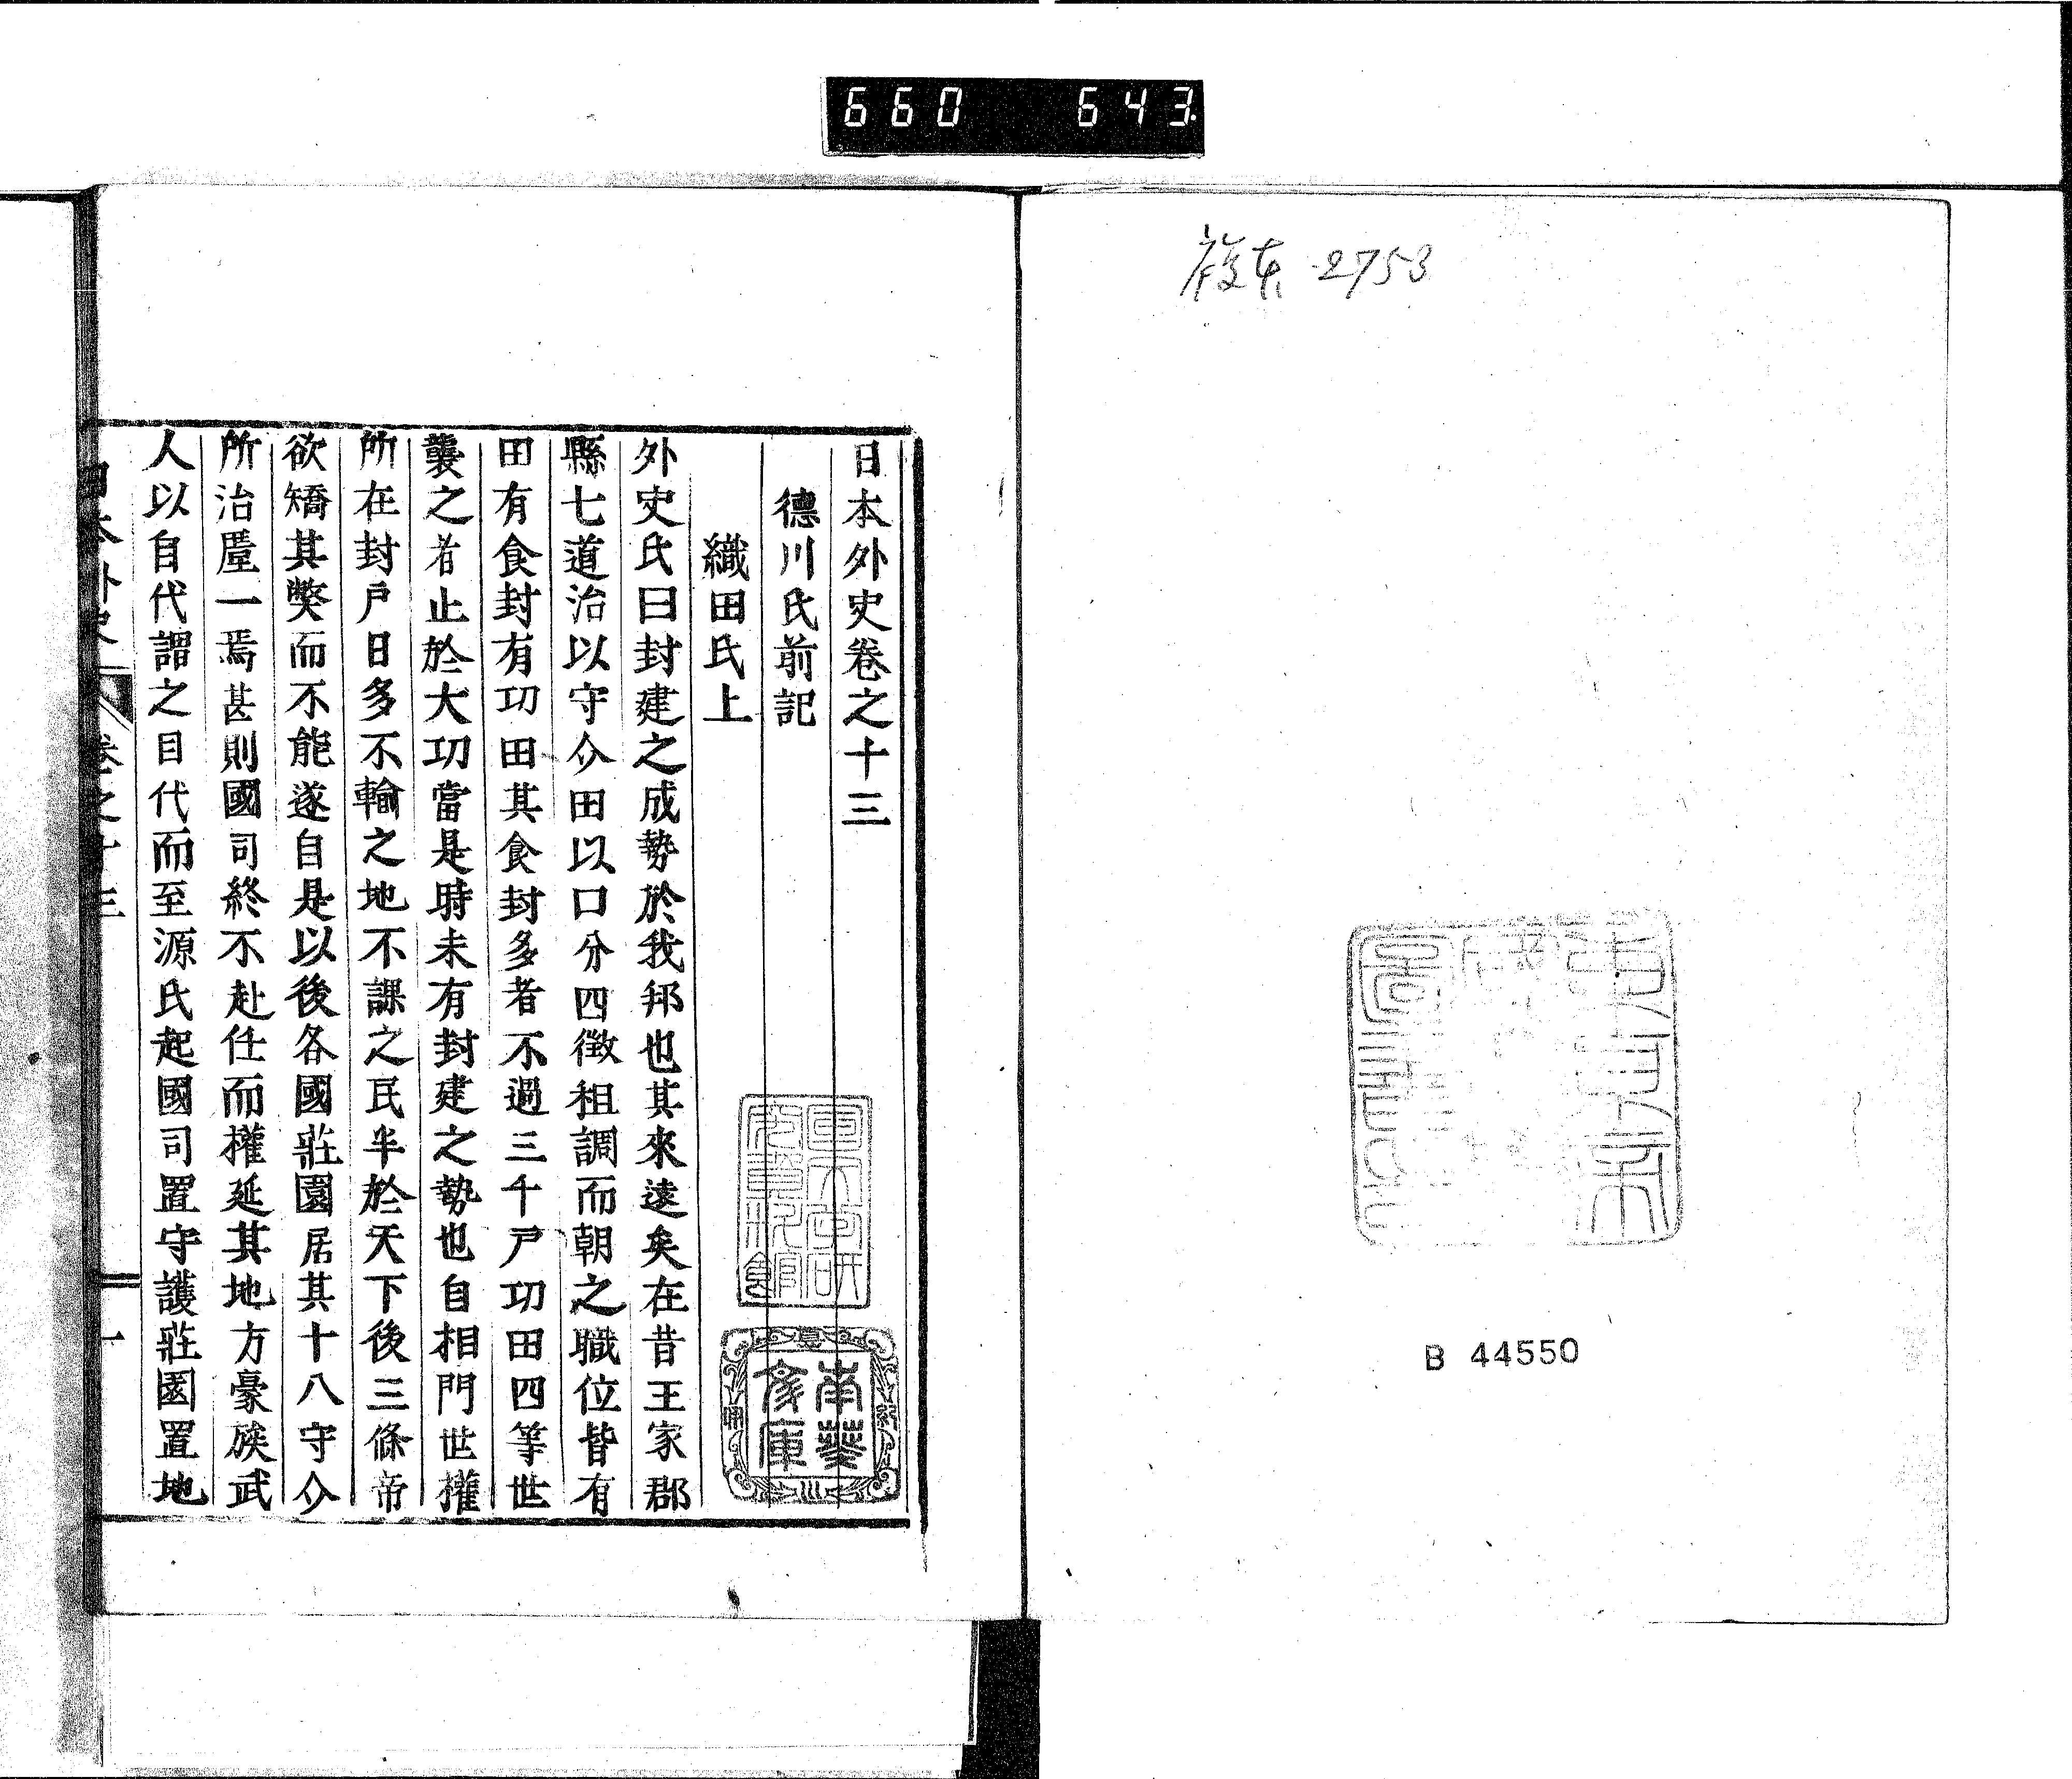 660 643
2753
B 44550
日本外史卷之十三
德川氏前記
織田氏上
外史氏曰封建之成勢於我邦也其來遠矣在昔王家郡
縣七道治以守介田以口分四徵租調而朝之職位皆有
田有食封有功田其食封多者不過三千戶功田四等世
襲之者止於大功當是時未有封建之勢也自相門世權
所在封戶日多不輸之地不課之民半於天下後三條帝
欲矯其弊而不能遂自是以後各國莊園居其十八守介
所治厪一焉甚則國司終不赴任而權延其地方豪族武
人以自代謂之目代而至源氏起國司置守護莊園置地
日本外史 卷之十三 一